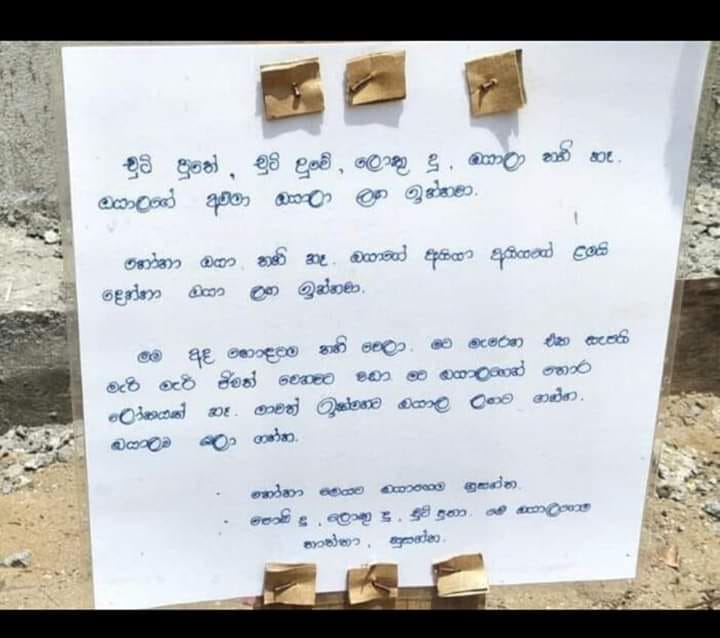 චුටි පුතේ, චුටි දුවේ, ලොකු දූ, ඔයාලා තනි නෑ.
ඔයාලගේ අම්මා ඔයාලා ලඟ ඉන්නවා.
නෝනා ඔයා තනි නෑ. ඔයාගේ අයියා අයියගේ ළමයි
දෙන්නා ඔයා ලඟ ඉන්නවා.
මම අද හොඳටම තනි වෙලා. මට මැරෙන එක සැපයි
මැරි මැරි ජීවත් වෙනවට වඩා මට ඔයාලගෙන් තොර
ලෝකයක් නෑ. මාවත් ඉක්මනට ඔයාල ලඟට ගන්න.
ඔයාලම බලා ගන්න.
නෝනා මෙයට ඔයාගෙම නුසන්ත.
පොඩි දූ, ලොකු දූ, චුටි පුතා. මේ ඔයාලගෙම
තාත්තා, නුසන්ත.